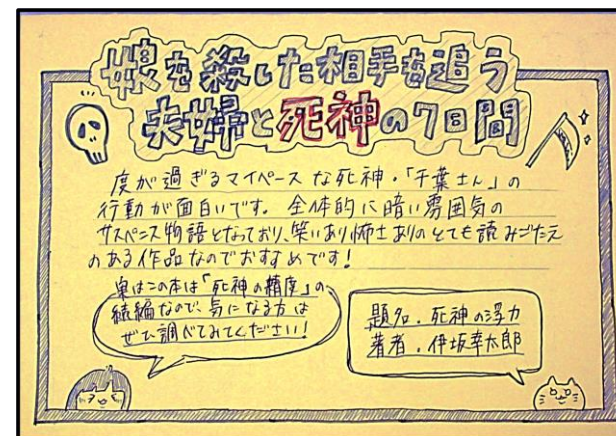 娘を殺した相手を追う
夫婦と死神の7日間
度が過ぎるマイペースな死神・「千葉さん」の
行動が面白いです。全体的に暗い雰囲気の
サスペンス物語となっており、笑いあり怖さありのとても読みごたえ
のある作品なのでおすすめです!
実はこの本は「死神の精度」の
続編なので、気になる方は
ぜひ調べてみてください!
題名．死神の浮力
著者．伊坂幸太郎